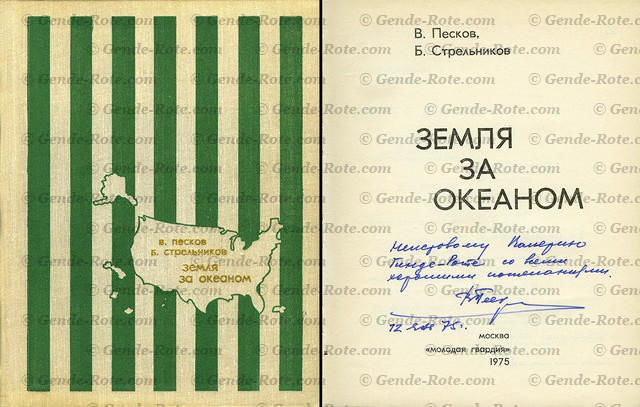 в. песков
Б. стрельников
земля
за океаном
В. Песков,
Б. Стрельников
ЗЕМЛЯ
ЗА
ОКЕАНОМ
Неистовому Валерию
Генде-Роте со всеми
хорошими пожеланиями.
12 75 г.
москва
«молодая гвардия»
1975
© Gende-Rote.com